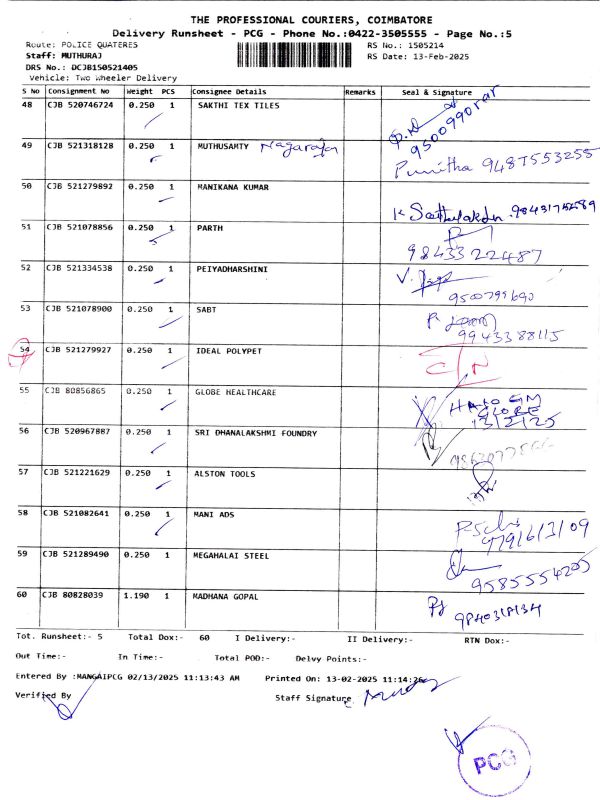 THE PROFESSIONAL COURIERS, COIMBATORE
Delivery Runsheet - PCG - Phone No.:0422-3505555 - Page No.:5
Route: POLICE QUATERES RS No.: 1505214
Staff: MUTHURAJ RS Date: 13-Feb-2025
DRS No.: DCJB150521405
Vehicle: Two Wheeler Delivery
S No Consignment No Weight PCS Consignee Details Remarks Seal & Signature
48 CJB 520746724 0.250 1 SAKTHI TEX TILES
49 CJB 521318128 0.250 1 MUTHUSAMTY Nagarajan Punitha 9487553255
50 CJB 521279892 0.250 1 MANIKANA KUMAR
51 CJB 521078856 0.250 1 PARTH 9843322487
52 CJB 521334538 0.250 1 PEIYADHARSHINI 9500799690
53 CJB 521078900 0.250 1 SABT 9943388115
54 CJB 521279927 0.250 1 IDEAL POLYPET C/N
55 CJB 80856865 0.250 1 GLOBE HEALTHCARE
GLOBE
13/2/25
56 CJB 520967887 0.250 1 SRI DHANALAKSHMI FOUNDRY
57 CJB 521221629 0.250 1 ALSTON TOOLS
58 CJB 521082641 0.250 1 MANI ADS 9791613109
59 CJB 521289490 0.250 1 MEGAHALAI STEEL 9585554205
60 CJB 80828039 1.190 1 MADHANA GOPAL
Tot. Runsheet:- 5 Total Dox:- 60 I Delivery:- II Delivery:- RTN Dox:-
Out Time:- In Time:- Total POD:- Delvy Points:-
Entered By :MANGAIPCG 02/13/2025 11:13:43 AM Printed On: 13-02-2025 11:14:26
Verified By Staff Signature
PCG